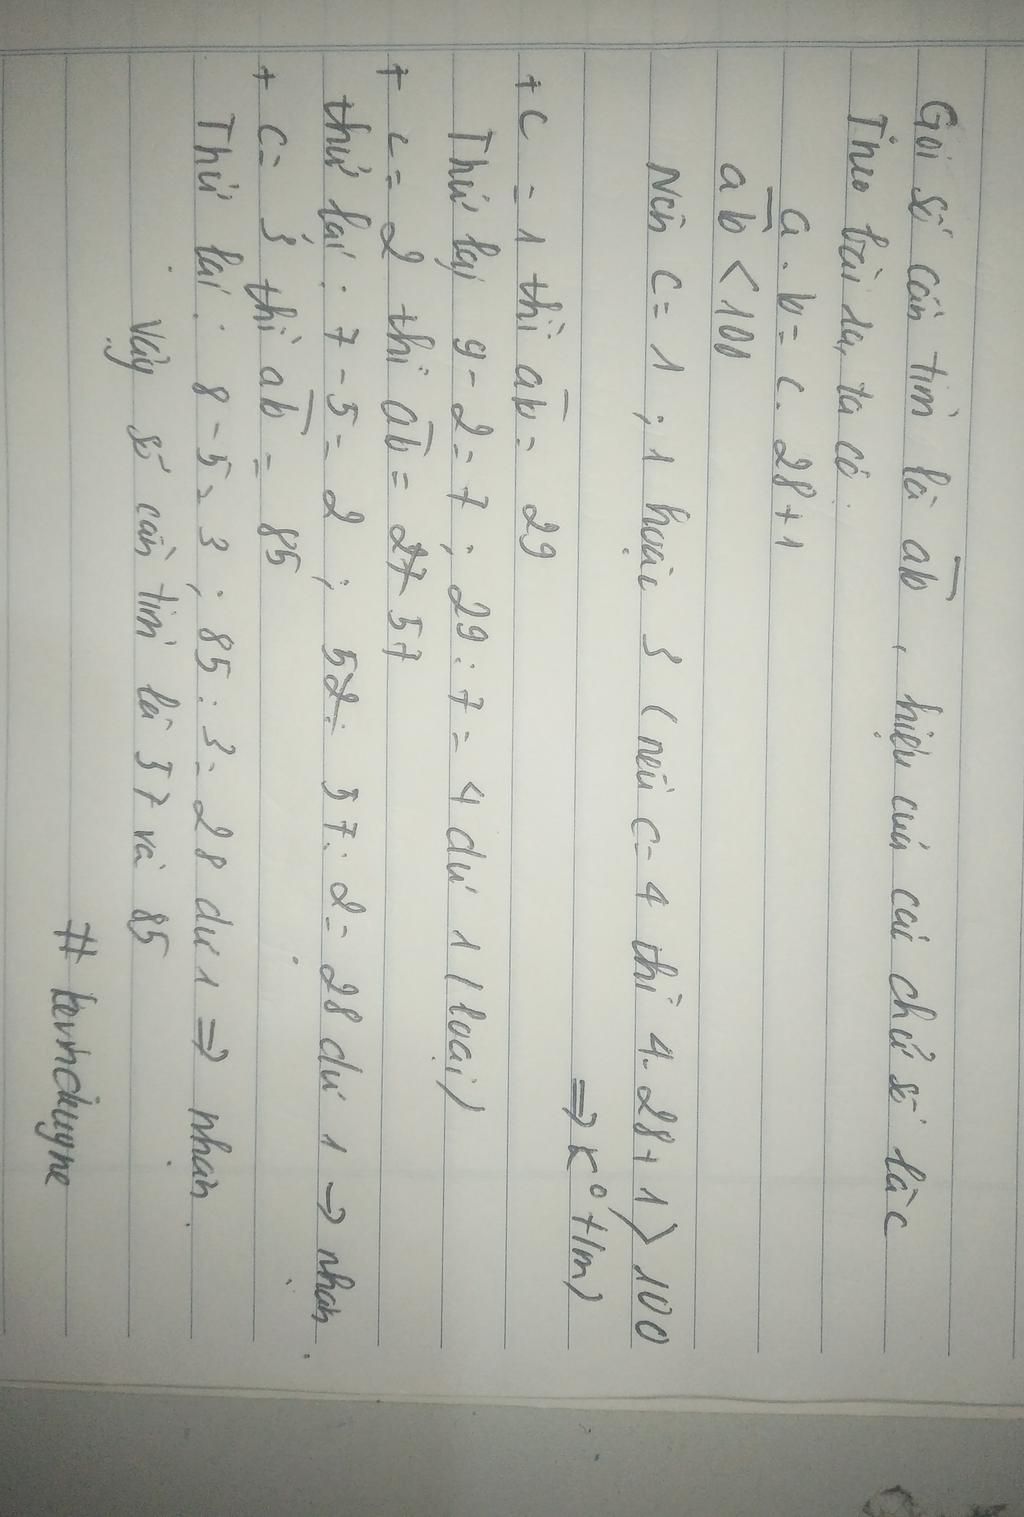 Gọi số cần tìm là ab, hiệu của các chữ số là c
Theo bài ra, ta có
a.b = c. 28+1
ab < 100
Nên c= 1 ; 1 hoặc 3 (nếu c= 4 thì 4.28+1 > 100
=> k° t/m)
+ c = 1 thì ab = 29
Thử lại 9-2=7 ; 29:7= 4 dư 1 (loại)
+ c= 2 thì ab = 27 57
thử lại : 7-5= 2 ; 52: 57:2= 28 dư 1 => nhận.
+ c= 3 thì ab = 85
Thử lại : 8-5=3 ; 85:3= 28 dư 1 => nhận.
Vậy số cần tìm là 57 và 85